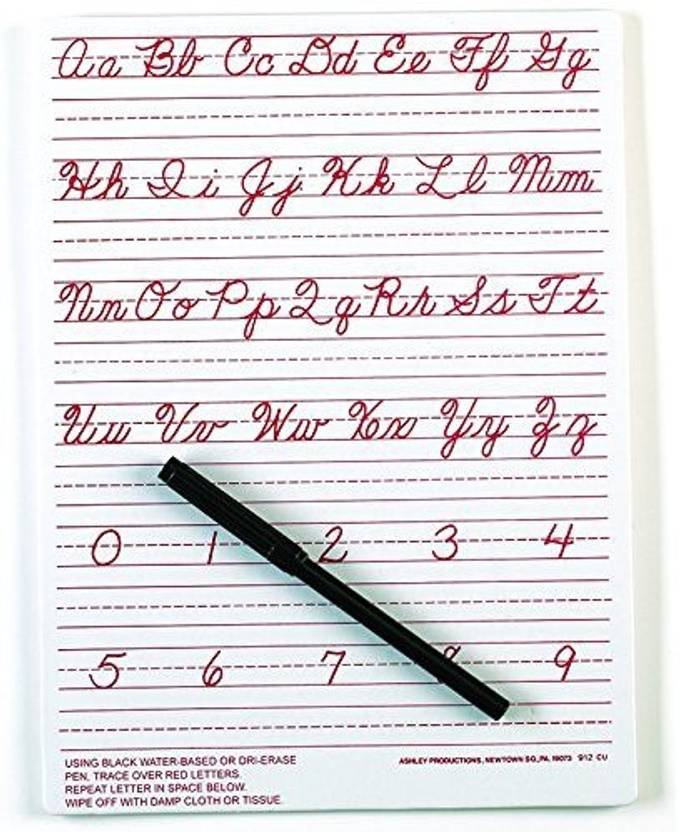 Aa Bb Cc Dd Ee Ff Gg
Hh Ii Jj Kk Ll Mm
Nn Oo Pp Qq Rr Ss Tt
Uu Vv Ww Xx Yy Zz
0 1 2 3 4
5 6 7 9
USING BLACK WATER-BASED OR DRI-ERASE
PEN, TRACE OVER RED LETTERS.
REPEAT LETTER IN SPACE BELOW.
WIPE OFF WITH DAMP CLOTH OR TISSUE.
ASHLEY PRODUCTIONS, NEWTOWN SQ., PA, 19073 912 CU